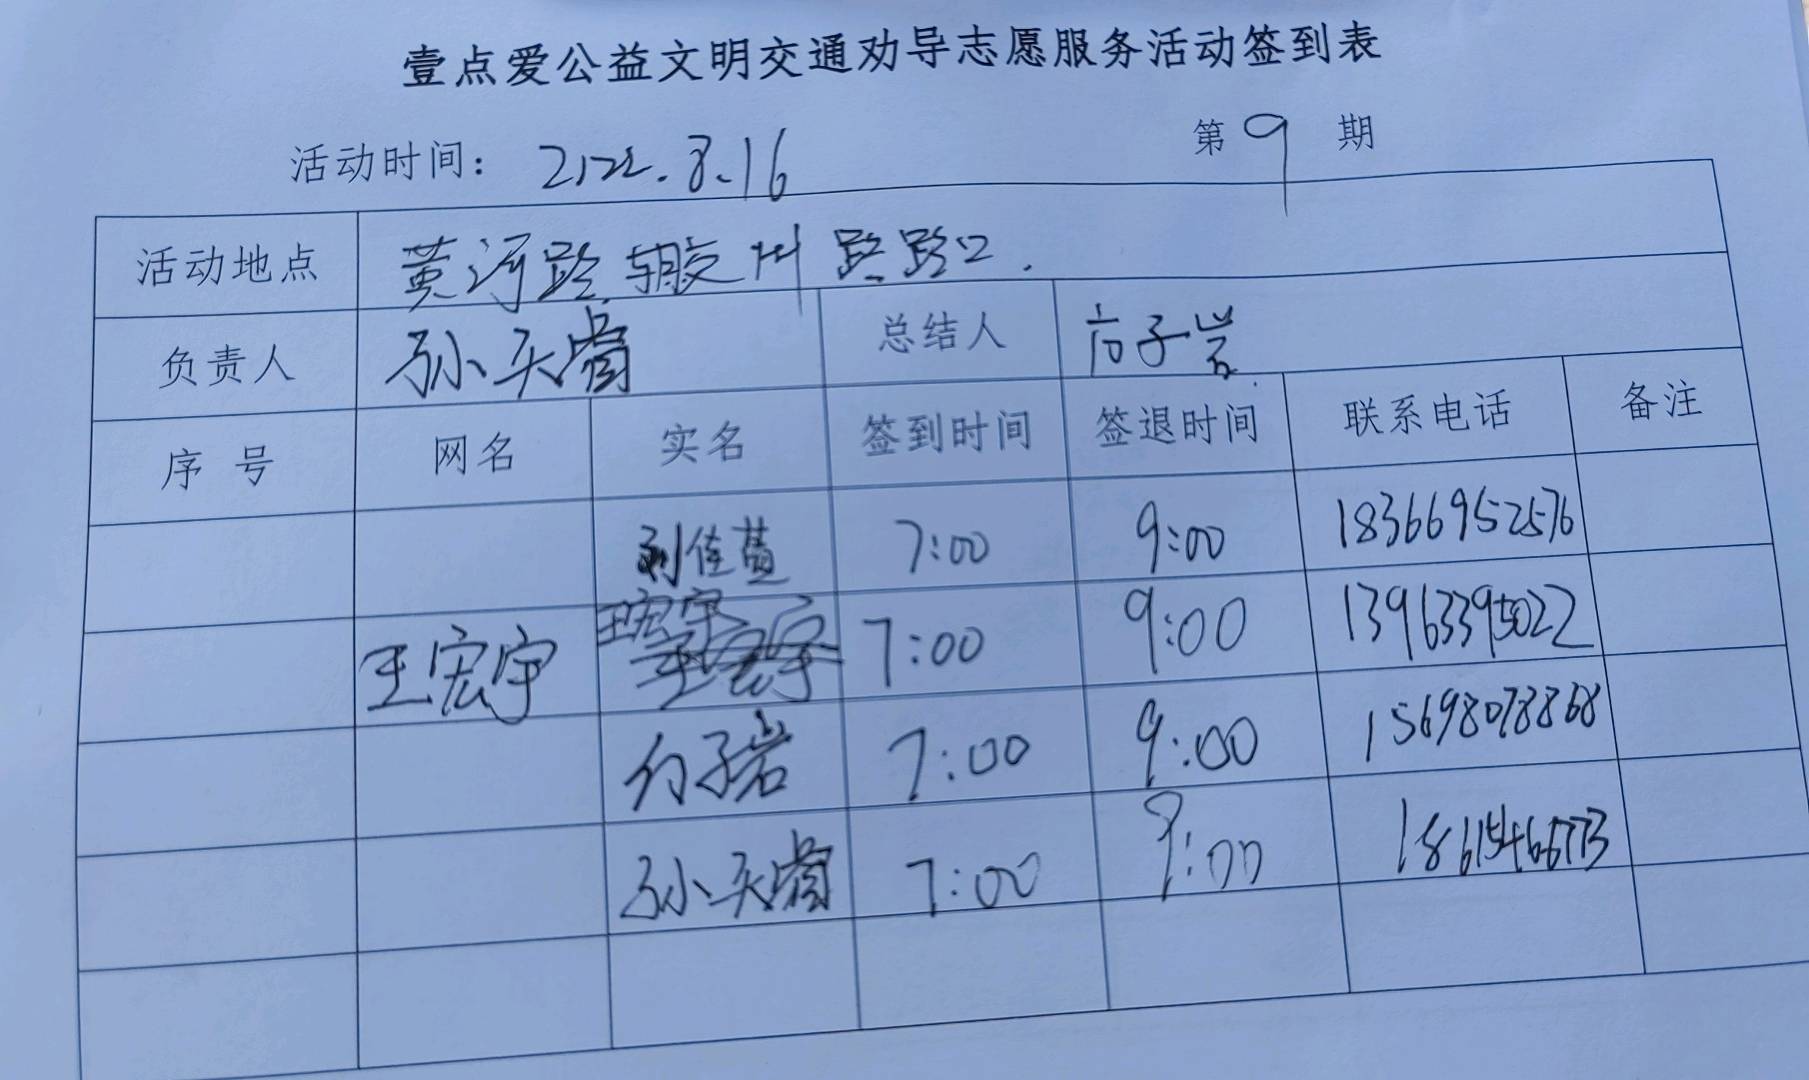 壹点爱公益文明交通劝导志愿服务活动签到表
活动时间： 2022.8.16 第 9 期
活动地点 黄河路胶州路路口.
负责人 孙天睿 总结人
序号 网名 实名 签到时间 签退时间 联系电话 备注
刘佳 7:00 9:00 18366952576
王宏宇 王宏宇 7:00 9:00 13963395022
付子岩 7:00 9:00 15698078868
孙天睿 7:00 9:00